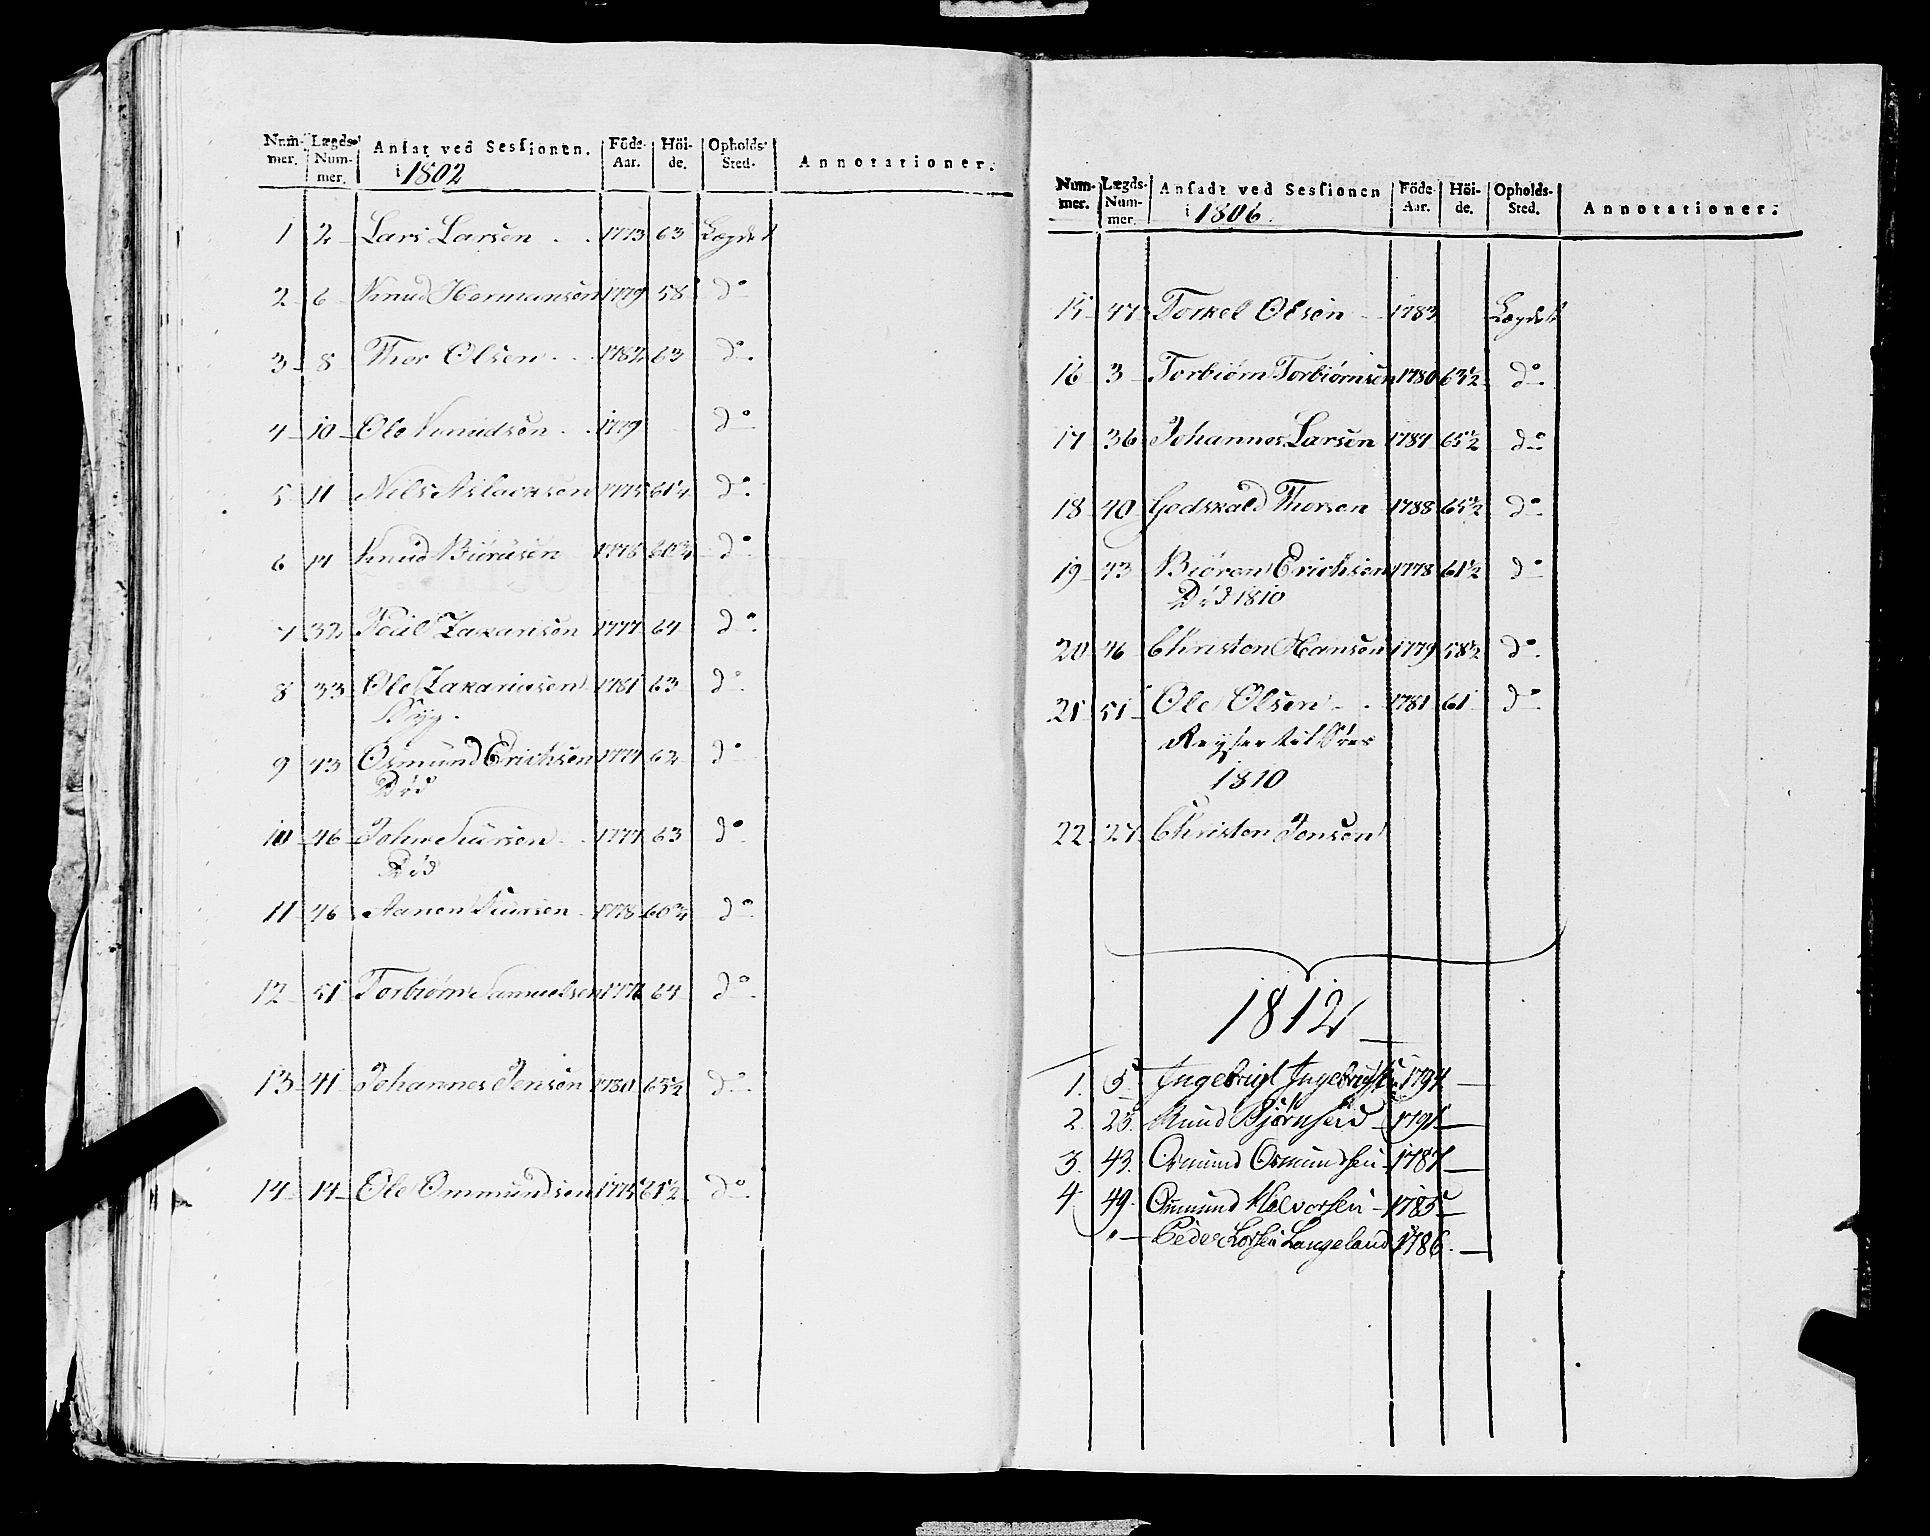 Num-mer. Lægds-Num-mer. Ansat ved Sessionen i 1802 Föde-Aar. Höi-de. Opholds-Sted. Annotationer.
1 2 Lars Larsen 1773 63 Lægdet
2 6 Knud Hermansen 1779 58 do
3 8 Thor Olsen 1782 63 do
4 10 Ole Knudsen 1779 do
5 11 Nils Aslacksen 1775 61¼ do
6 14 Knud Biörnsen 1778 60¾ do
7 32 Poul Zakarisen 1777 64 do
8 33 Ole Zakariasen 1781 63 do
9 43 Osmund Erichsen 1777 62 do
Död
10 46 John 1777 63 do
Död
11 46 Aanen 1778 60¾ do
12 51 Torbiörn Samuelsen 64 do
13 41 Johannes Jensen 1780 65½ do
14 14 Ole Ommundsen 1775 61½ do
Num-mer. Lægds-Num-mer. Ansadt ved Sessionen i 1806. Föde-Aar. Höi-de. Opholds-Sted. Annotationer.
15 47 Torkel Olsen 1783 Lægdet
16 3 Torbiörn Torbiörnsen 1780 63½ do
17 36 Johannes Larsen 1787 65½ do
18 40 Godskald Thorsen 1788 65½ do
19 43 Biören Erichsen 1778 61½ do
Död 1810
20 46 Christen Hansen 1779 58½ do
21 51 Ole Olsen 1781 61 do
Reyser til
1810
22 27 Christen Jensen
1812
1. 5 Ingebrigt Ingebrigtsen 1794
2 25. Knud Bjørnsen 1791
3. 43. Osmund Osmundsen 1787
4 49. Ommund Halvorsen 1785
" Peder Larsen Langeland 1786.